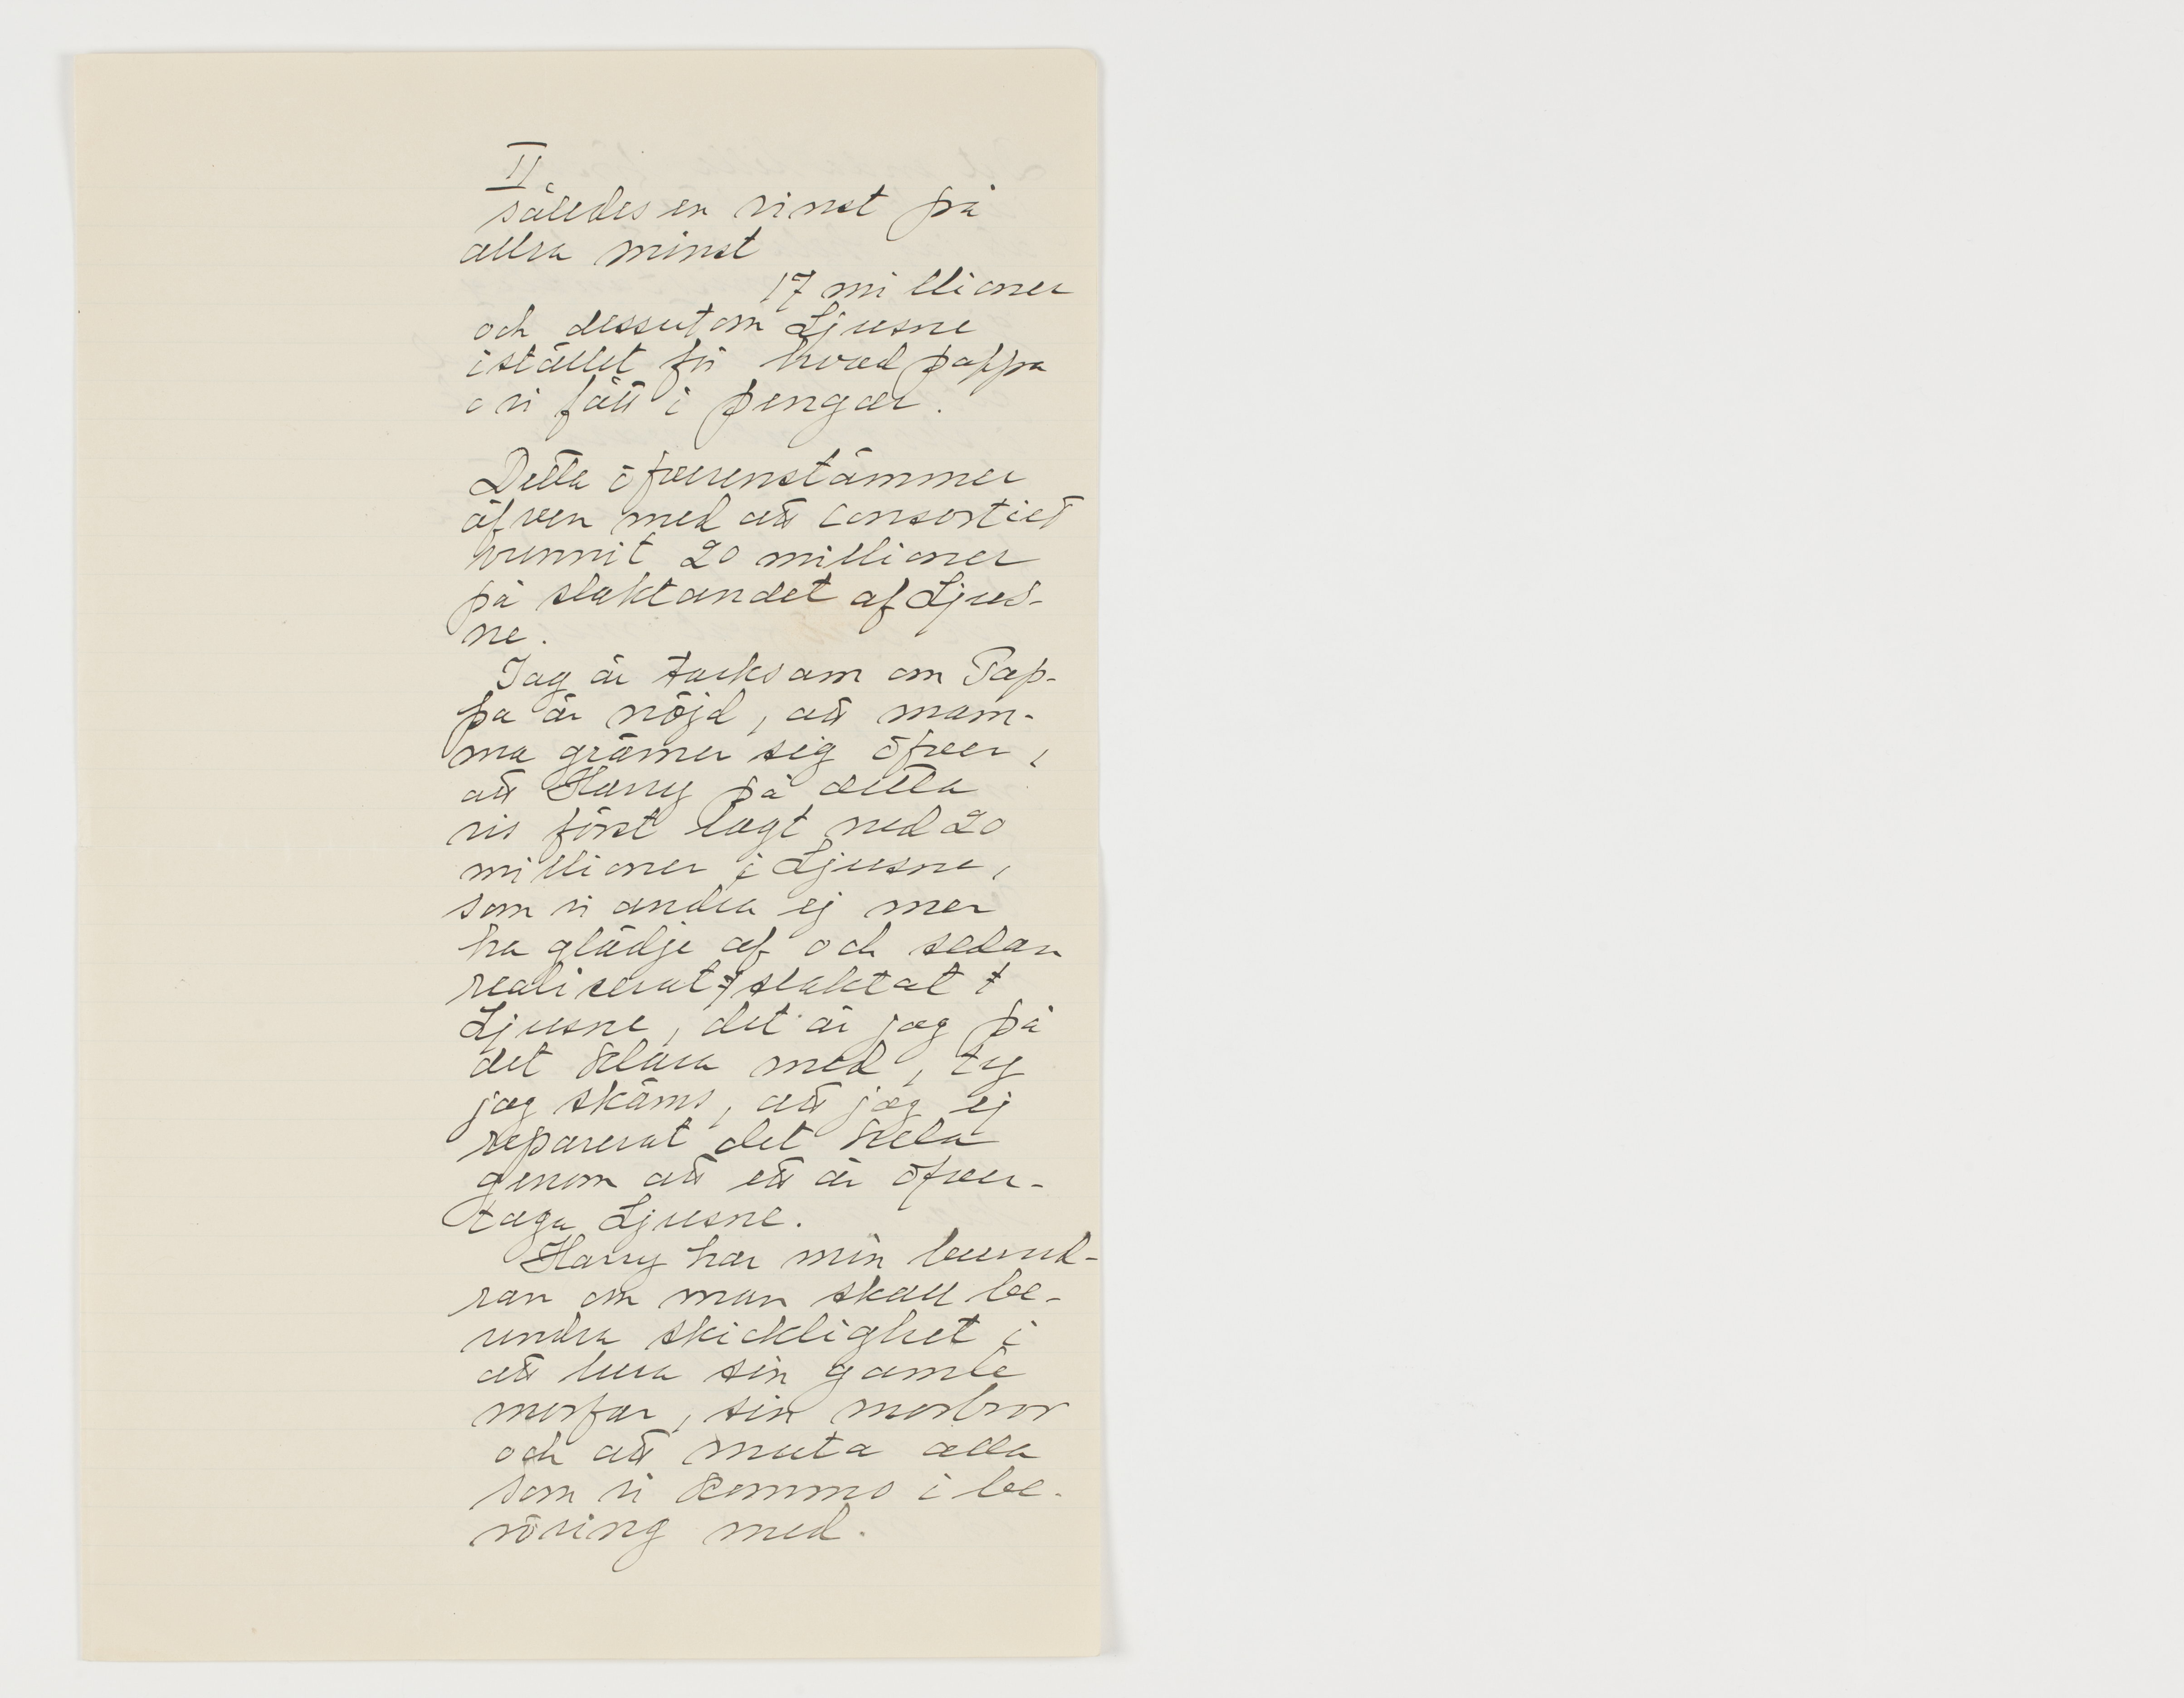 II.
således en vinst på
allra minst
17 millioner
och dessutom Ljusne
istället för hvad pappa
o vi fått i pengar.
Detta öfverenstämmer
äfven med att consortiet
vunnit 20 millioner
på slaktandet af Ljus-
ne.
Jag är tacksam om Pap-
pa är nöjd, att mam-
ma grämer sig öfver,
att Harry på detta
vis först lagt ned 20
millioner i Ljusne,
som vi andra ej mer
ha glädje af och sedan
realiserat slaktat
Ljusne, det är jag på
det klara med, ty
jag skäms, att jag ej
reparerat det hela
genom att ett år öfver-
taga Ljusne.
Harry har min beund-
ran om man skall be-
undra skicklighet i
att lura sin gamle
morfar, sin morbror
och att muta alla
som vi kommo i be-
röring med.